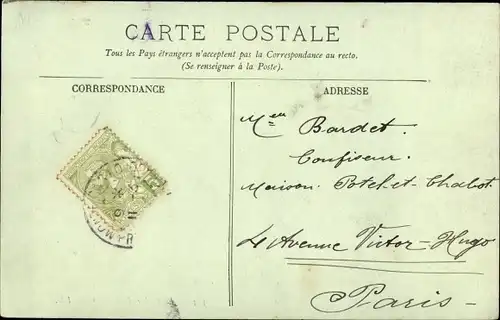 CARTE POSTALE
Tous les Pays étrangers n'acceptent pas la Correspondance au recto.
(Se renseigner à la Poste).
CORRESPONDANCE
ADRESSE
Bardet.
Confiseur.
Maison Potel et Chabot
4 Avenue Victor-Hugo
Paris